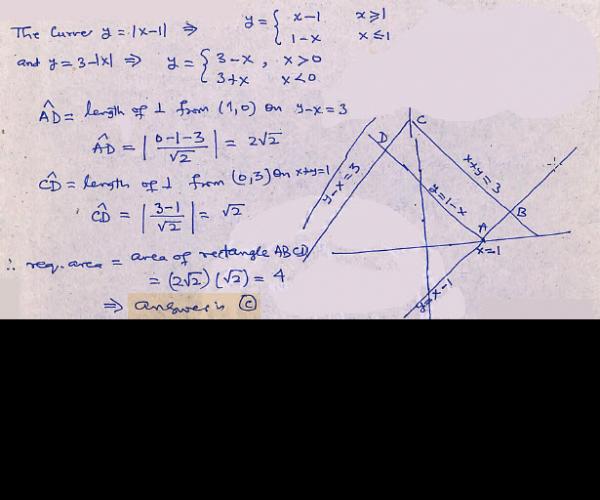 The Curve y = |x-1| ⇒ y = { x-1 x ⩾ 1
1-x x ≤ 1
and y = 3-|x| ⇒ y = { 3-x, x > 0
3+x x < 0
AD̂ = length of ⊥ from (1,0) on y-x = 3
AD̂ = | 0-1-3 / √2 | = 2√2
CD̂ = length of ⊥ from (0,3) on x+y=1
CD̂ = | 3-1 / √2 | = √2
∴ req. area = area of rectangle ABCD
= (2√2) (√2) = 4
⇒ answer is ⓒ
C
D
y-x = 3
x+y = 3
y = 1-x
B
A
x=1
y = x-1